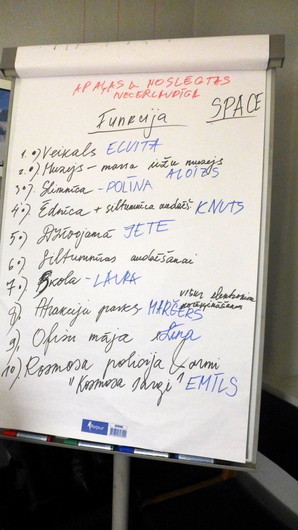 APAĻAS & NOSLĒGTAS
NECERLAUDĪGA
SPACE
Funkcija
1.) Veikals ELVITA
2.) Muzejs – marsa iežu muzejs
ALOIZS
3.) Slimnīca – POLĪNA
4.) Ēdnīca + siltumnīca audzēš. KNUTS
5.) Dzīvojamā JETE
6.) Siltumnīcas audzēšanai
7.) Skola – LAURA
8.) Atrakciju parks MARĢERS
visu elementu
9.) Ofisu māja Liņa
10.) Kosmosa policija & armi
"Kosmosa sargi" EMĪLS